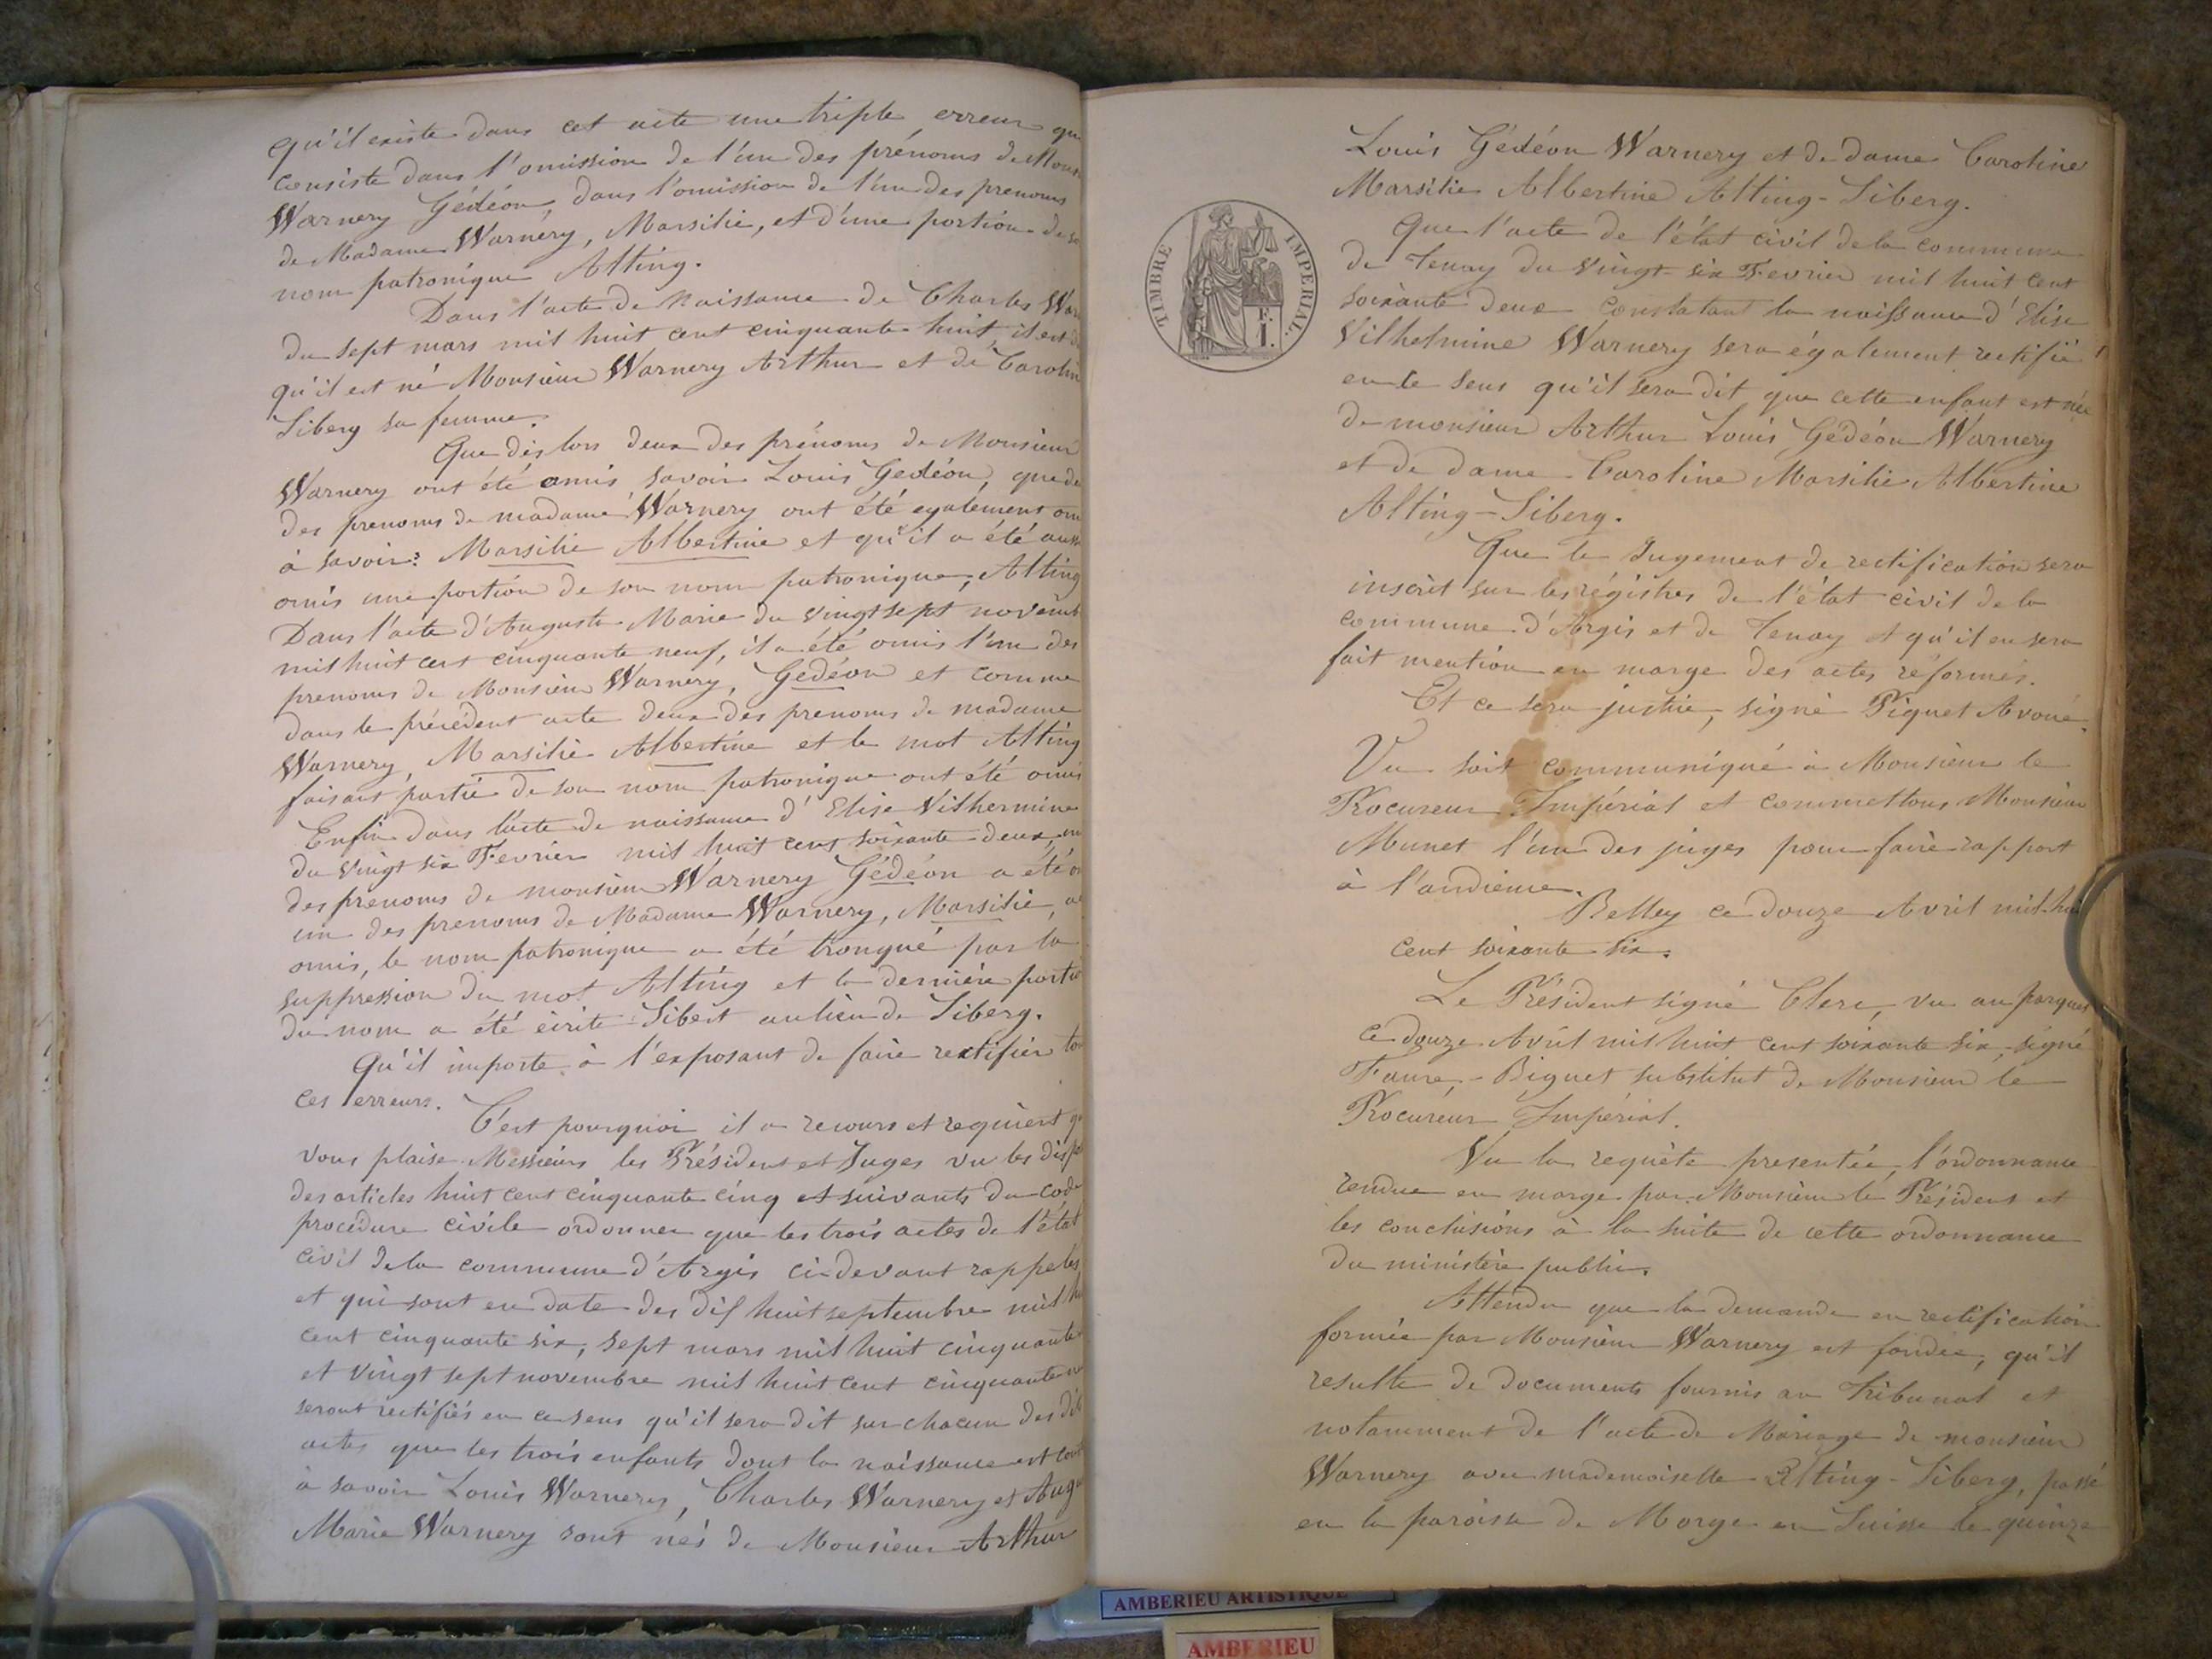 qu'il existe dans cet acte une triple erreur qui
consiste dans l'omission de l'un des prénoms de Mons
Warnery Gédéon, dans l'omission de l'un des prenoms
de Madame Warnery, Marsilie, et d'une portion de
nom patronique Alting.
Dans l'acte de naissance de Charles War
du sept mars mil huit cent cinquante huit, il est
qu'il est né Monsieur Warnery Arthur et de Carolin
Siberg sa femme.
Que dès lors deux des prénoms de Monsieur
Warnery ont été omis savoir Louis Gédéon, que de
des prenoms de madame Warnery ont été egalement om
à savoir: Marsilie Albertine et qu'il a été auss
omis une portion de son nom patronique, Alting
Dans l'acte d'Auguste Marie du vingt sept novemb
mil huit cent cinquante neuf, il a été omis l'un des
prenoms de Monsieur Warnery, Gédéon et comme
dans le précédent acte deux des prenoms de madame
Warnery, Marsilie Albertine et le mot Alting
faisant partie de son nom patronique ont été omis
Enfin dans l'acte de naissance d'Elise Vilhermine
du vingt six Fevrier mil huit cent soixante deux, un
des prenoms de monsieur Warnery Gédéon a été o
un des prenoms de Madame Warnery, Marsilie, a
omis, le nom patronique a été tronqué par la
suppression du mot Alting et la dernière partie
du nom a été écrite Sibert au lieu de Siberg.
Qu'il importe à l'exposant de faire rectifier to
ces erreurs.
C'est pourquoi il a recours et requiert qu
vous plaise Messieurs les Président et Juges vu les disp
des articles huit cent cinquante cinq et suivants du code
procédure civile ordonner que les trois actes de l'état
civil de la commune d'Argis ci-devant rappelés
et qui sont en date des dix huit septembre mil h
cent cinquante six, sept mars mil huit cinquante
et vingt sept novembre mil huit cent cinquante ne
seront rectifiés en ce sens qu'il sera dit sur chacun des dit
actes que les trois enfants dont la naissance est cons
à savoir Louis Warnery, Charles Warnery et Augu
Marie Warnery sont nés de Monsieur Arthur
Louis Gédéon Warnery et de dame Caroline
Marsilie Albertine Alting-Siberg.
Que l'acte de l'état civil de la commune
de Tenay du vingt-six Fevrier mil huit cent
soixante deux constatant la naissance d'Elise
Vilhelmine Warnery sera également rectifié
en ce sens qu'il sera dit que cette enfant est née
de monsieur Arthur Louis Gédéon Warnery
et de dame Caroline Marsilie Albertine
Alting-Siberg.
Que le Jugement de rectification sera
inscrit sur les régistres de l'état civil de la
commune d'Argis et de Tenay et qu'il en sera
fait mention en marge des actes réformés.
Et ce sera justice, signé Piquet Avoué.
Vu soit communiqué à Monsieur le
Procureur Impérial et commettons Monsieur
Munet l'un des juges pour faire rapport
à l'audience.
Belley ce douze Avril mil hui
cent soixante six.
Le Président signé Clerc, vu au parquet
ce douze Avril mil huit cent soixante six, signé
Faure-Biguet substitut de Monsieur le
Procureur Impérial.
Vu la requète presentée, l'ordonnance
rendue en marge par Monsieur le Président et
les conclusions à la suite de cette ordonnance
du ministère public.
Attendu que la demande en rectification
formée par Monsieur Warnery est fondée, qu'il
resulte de documents fournis au Tribunal et
notamment de l'acte de Mariage de monsieur
Warnery avec mademoiselle Alting-Siberg, passé
en la paroisse de Morge en Suisse le quinze
TIMBRE IMPERIAL.
F. I.
AMBERIEU ARTISTIQUE
AMBERIEU